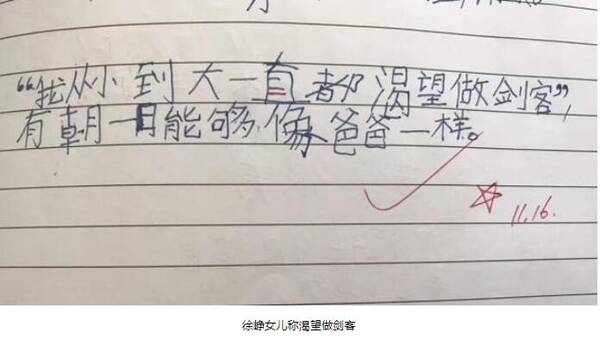 “我从小到大一直都渴望做剑客”,
有朝一日能够像爸爸一样。
11.16.
徐峥女儿称渴望做剑客